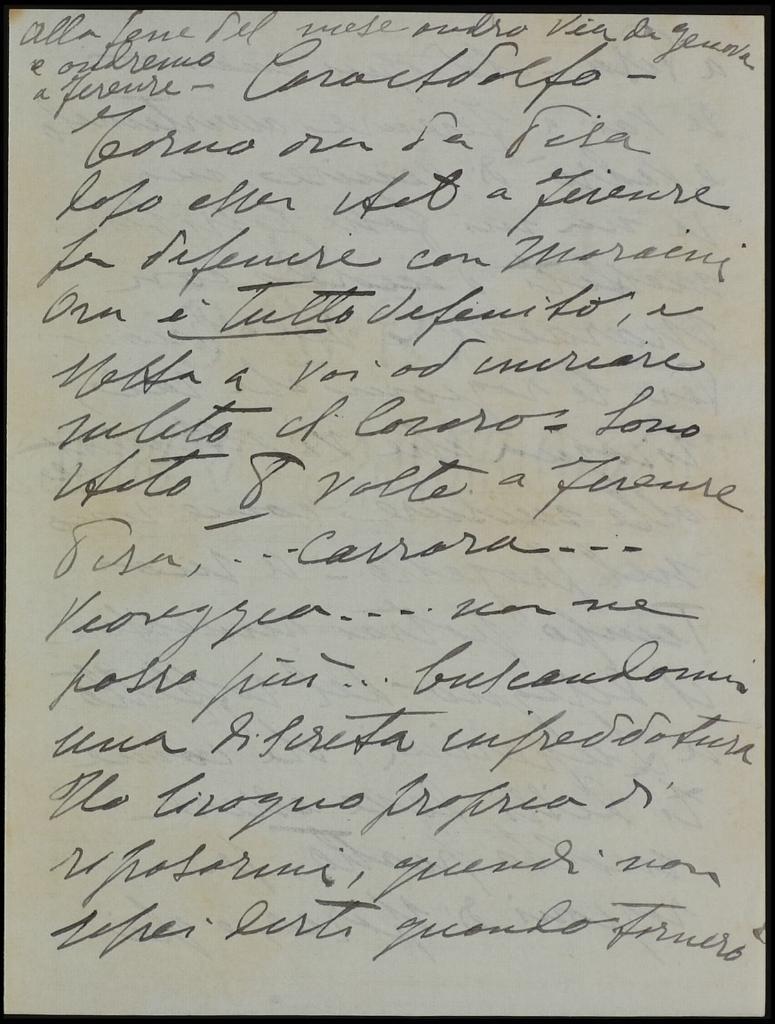 alla fine del mese andrò via da Genova
e andremo
a Firenze –
Caro Adolfo –
Torno ora da Pisa
dopo esser stato a Firenze
per definire con Maraini
Ora è tutto definito, e
spetta a voi ad iniziare
subito il lavoro = Sono
stato 8 volte a Firenze
Pisa, - - - Carrara - - -
Viareggio .... non ne
posso più ... buscandomi
una discreta infreddatura
Ho bisogno proprio di
riposarmi, quindi non
saprei dirti quando tornerò